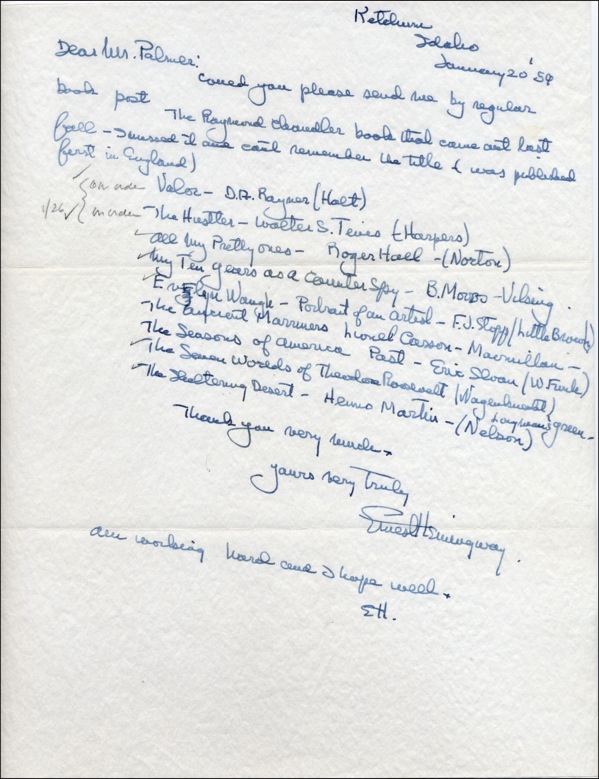 Ketchum
Idaho
January 20 '59
Dear Mr. Palmer:
Could you please send me by regular
book post The Raymond Chandler book that came out last
fall - I missed it and cant remember the title (was published
first in England)
on order Valor - D.A. Rayner (Holt)
1/26 on order The Hustler - Walter S. Tevis (Harpers)
All My Pretty ones - Roger Hall - (Norton)
My Ten years as a Counter Spy - B. Morros - Viking
Evelyn Waugh - Portrait of an Artist - F.J. Stopp (Little Brown)
The Ancient Mariners Lionel Casson - Macmillan -
The Seasons of America Past - Eric Sloan (W. Funk)
The Seven Worlds of Theodore Roosevelt (Wagenknecht) Longmans green -
The Sheltering Desert - Henno Martin - (Nelson)
Thank you very much.
Yours very Truly
Ernest Hemingway.
Am working hard and I hope well.
EH.